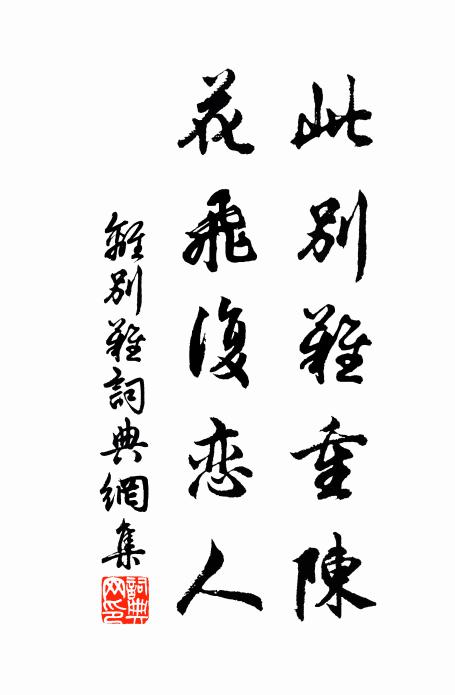 此別難重陳
花飛復恋人
離別難詞典網集
詞典網印